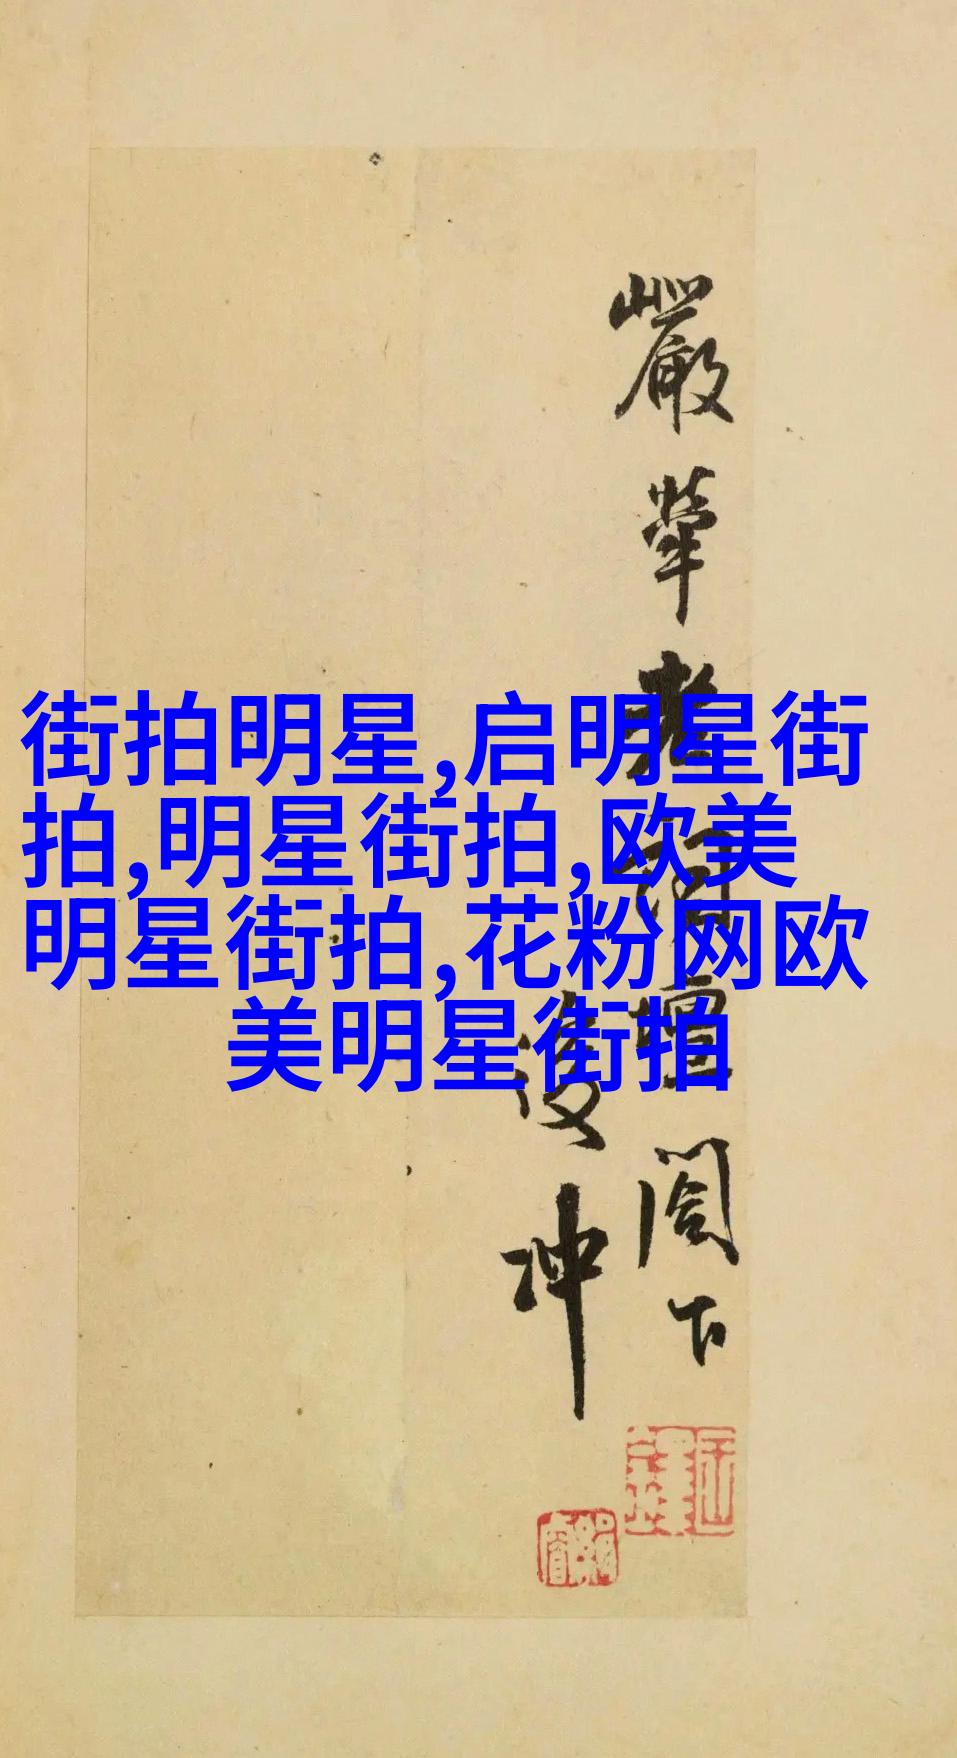 街拍明星,启明星街
拍,明星街拍,欧美
明星街拍,花粉网欧
美明星街拍
嚴犖老詞壇閣下
復冲